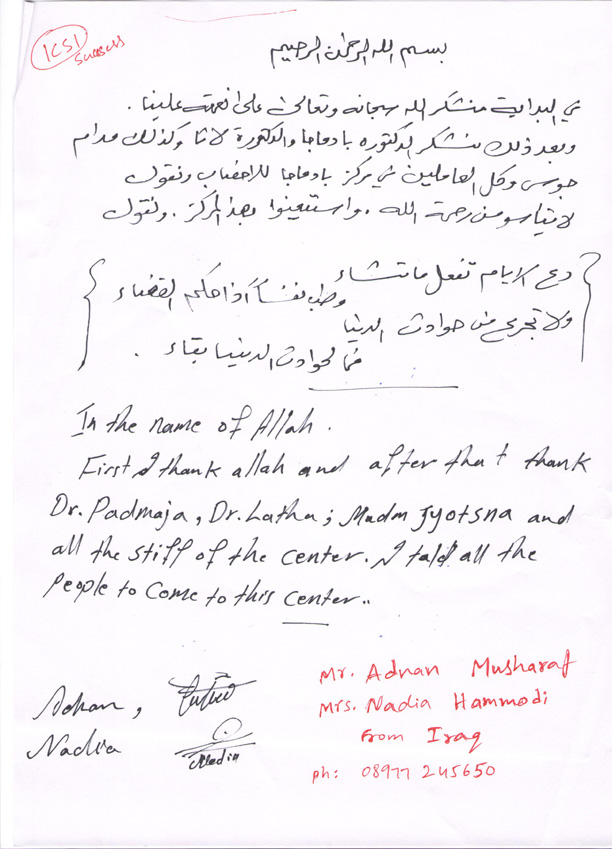 ICSI
Success
بسم الله الرحمن الرحيم
في البداية نشكر الله سبحانه وتعالى على نعمته علينا .
وبعد ذلك نشكر الدكتوره بادماجا والدكتورة لاثا وكذلك مدام
جوسى وكل العاملين في مركز بادماجا للاخصاب ونقول
لا تيأسو من رحمة الله . واستعينوا بهذا المركز . ونقول
دع الايام تفعل ما تشاء
وطب نفساً اذا حكم القضاء
ولا تجزع من حوادث الدنيا
فما لحوادث الدنيا بقاء .
In the name of Allah .
First I thank allah and after that thank
Dr. Padmaja , Dr. Latha ; Madm Jyotsna and
all the stiff of the center . I told all the
people to Come to this center ..
Adnan ,
Nadia
Nadia
Mr. Adnan Musharaf
Mrs. Nadia Hammodi
From Iraq
ph: 08977 245650